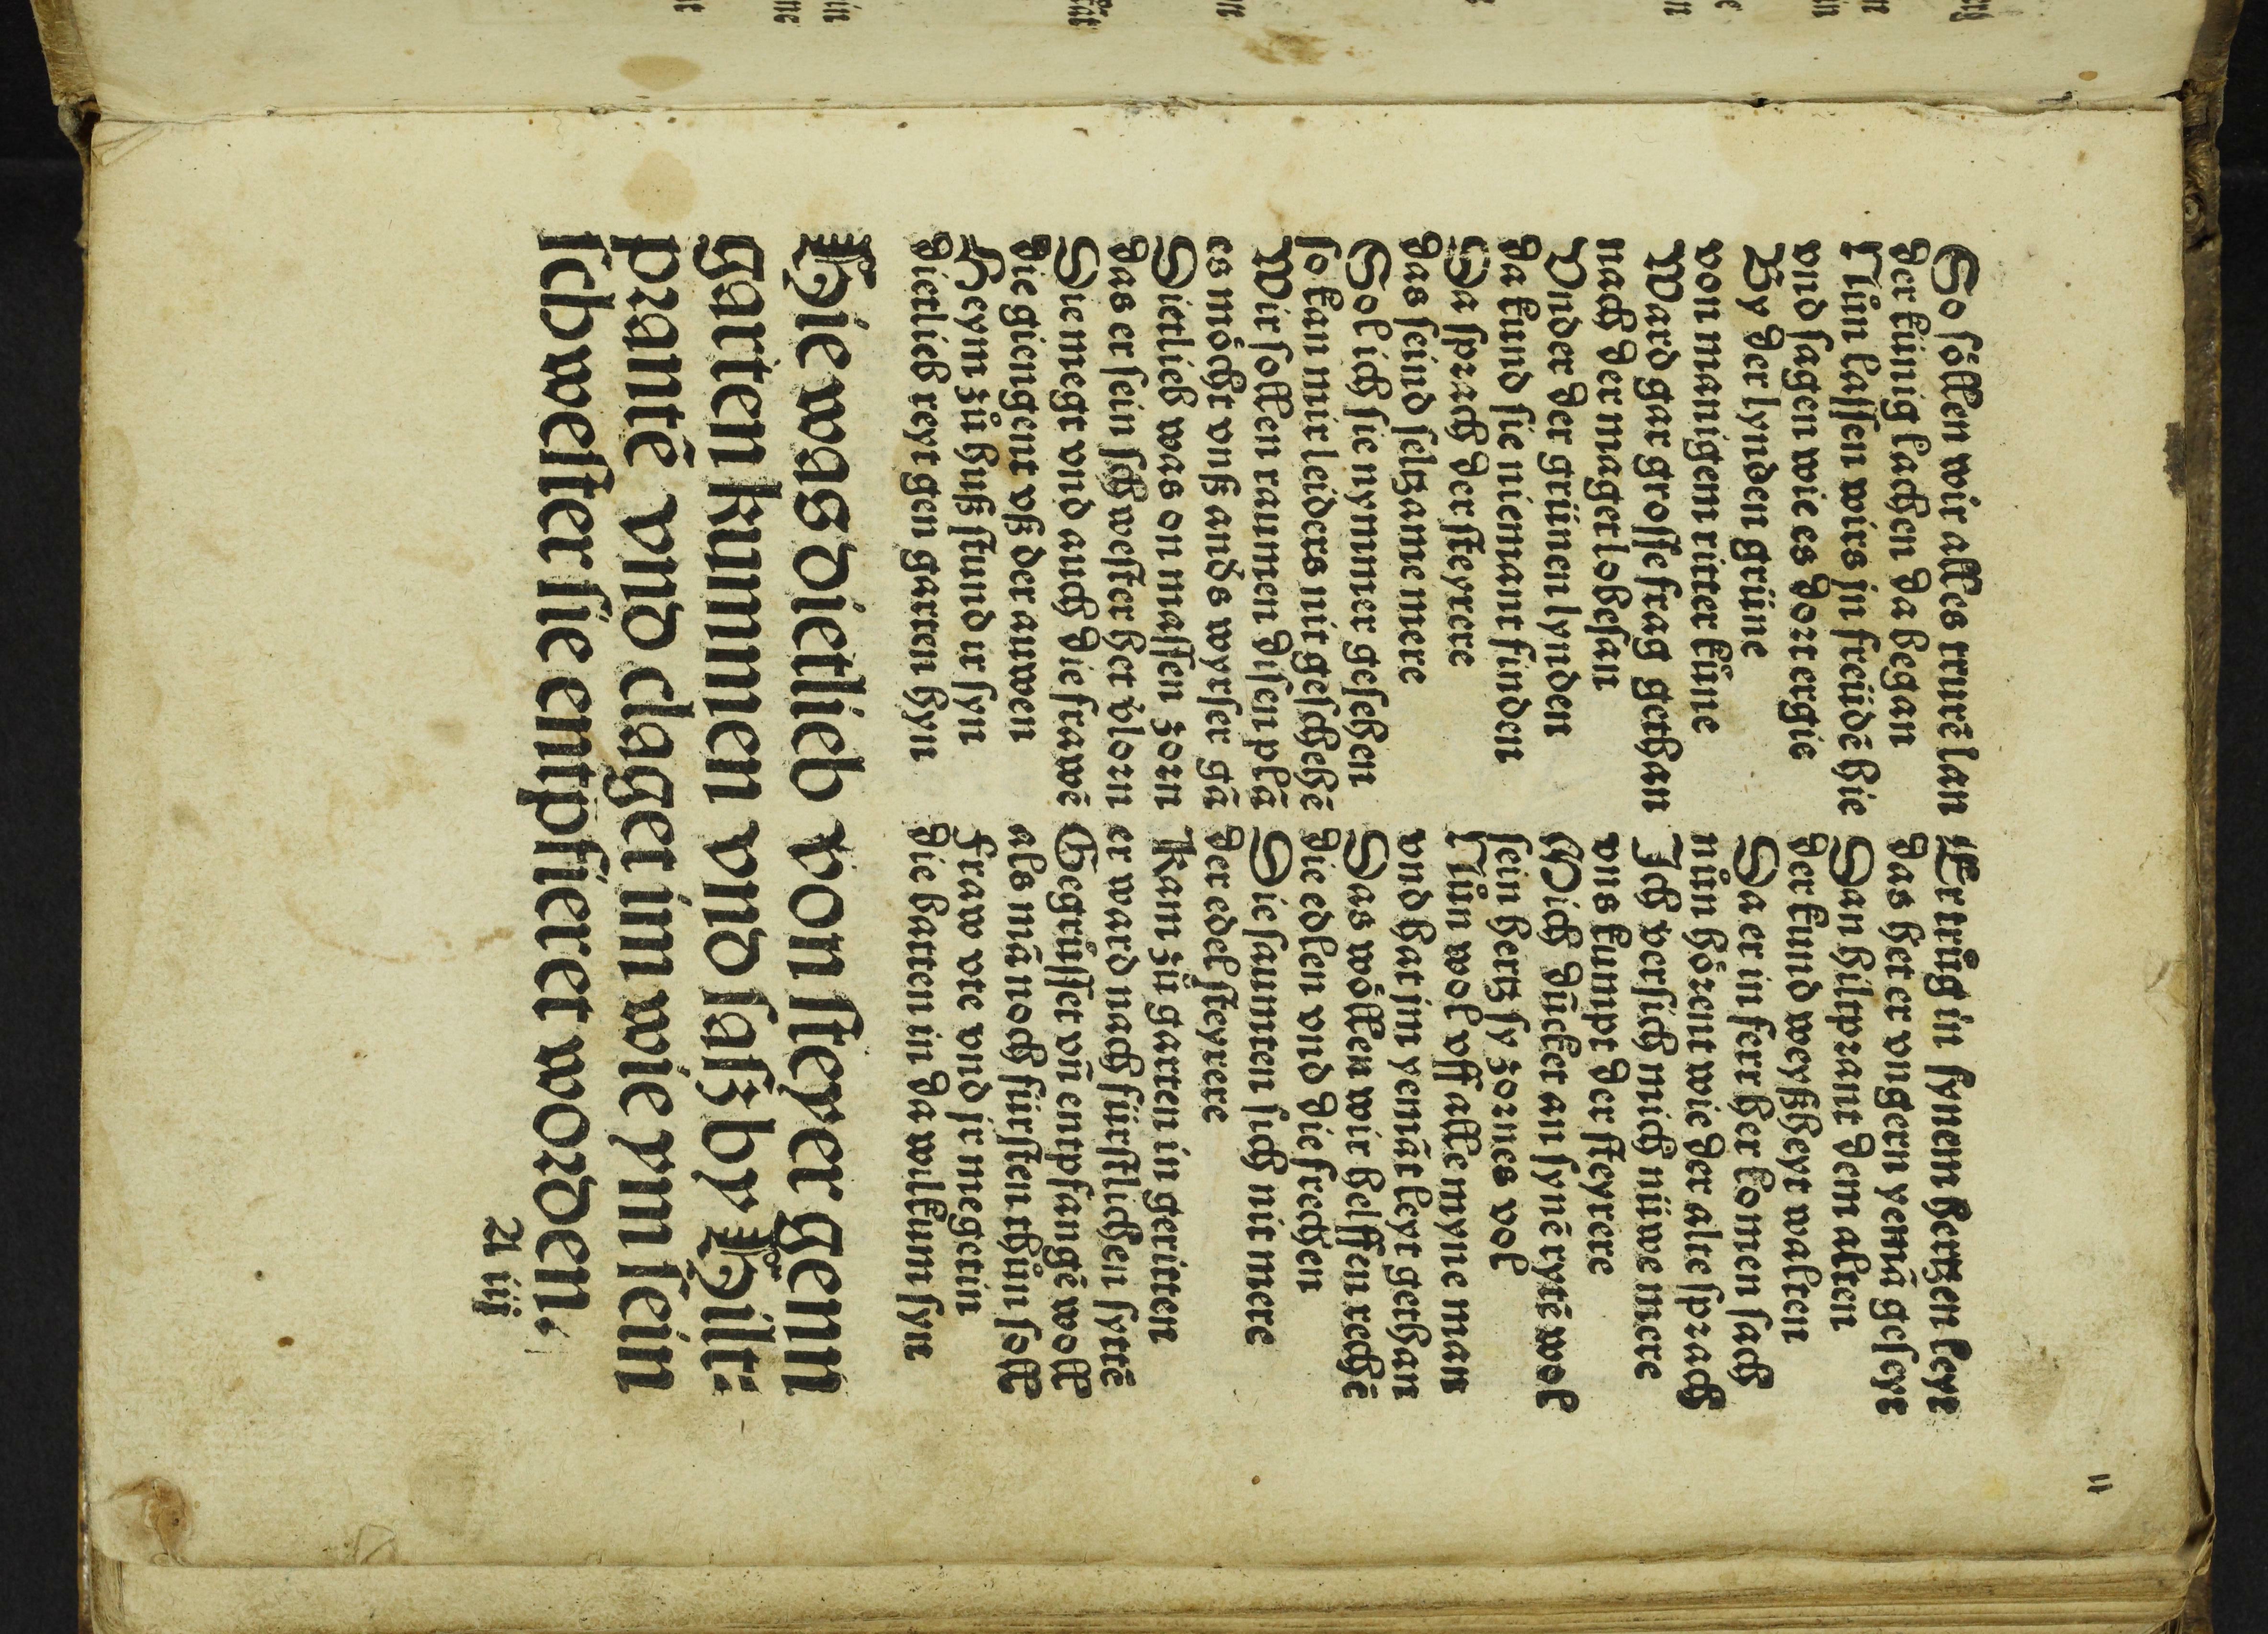 So söllen wir alles trurē lan
der künig lachen da began
Nůn lassen wirs in freüdē hie
vnd sagen wie es dort ergie
By der lynden grüne
von manigem ritter küne
Ward gar grosse frag gethan
nach der maget lobesan
Vnder der grünen lynden
da kund sie niemant finden
Da sprach der steyrere
das seind seltzame mere
Sol ich sie nymmer gesehen
so kan mir leiders nit geschehē
Wir sollen raumen disen plā
es möcht vnß and s wyrser gā
Dietlieb was on massen zorn
das er sein schwester het v̓lorn
Die megt vnd auch die frawē
die giengent vß der auwen
Heym zů huß stund ir syn
dietlieb reyt gen garten hyn
Er trůg in synem hertzen leyt
das het er vngern yemā geseyt
Dan hiltprant dem alten
der kund weyßheyt walten
Da er in ferr her komen sach
nůn hörent wie der alte sprach
Ich versich mich nüwe mere
vns kumpt der steyrere
Mich dūcket an synē rytē wol
sein hertz sy zornes vol
Nůn wol vff alle myne man
vnd hat jm yemāt leyt gethan
Das wöllen wir helffen rechē
die edlen vnd die frechen
Die saumten sich nit mere
der edel steyrere
Kam zů garten in geritten
er ward nach fürstlichen syttē
Gegrůsset vn̄ entpfangē woll
als mā noch fürsten thůn soll
Fraw vte vnd jr megetin
die hatten in da wilkumm syn
Hie was dietlieb von steyer genn
garten kummen vnd saß by Hilt⸗
prantē vnd claget im wie ym sein
schwester sie entpfieret worden.
A iij
11